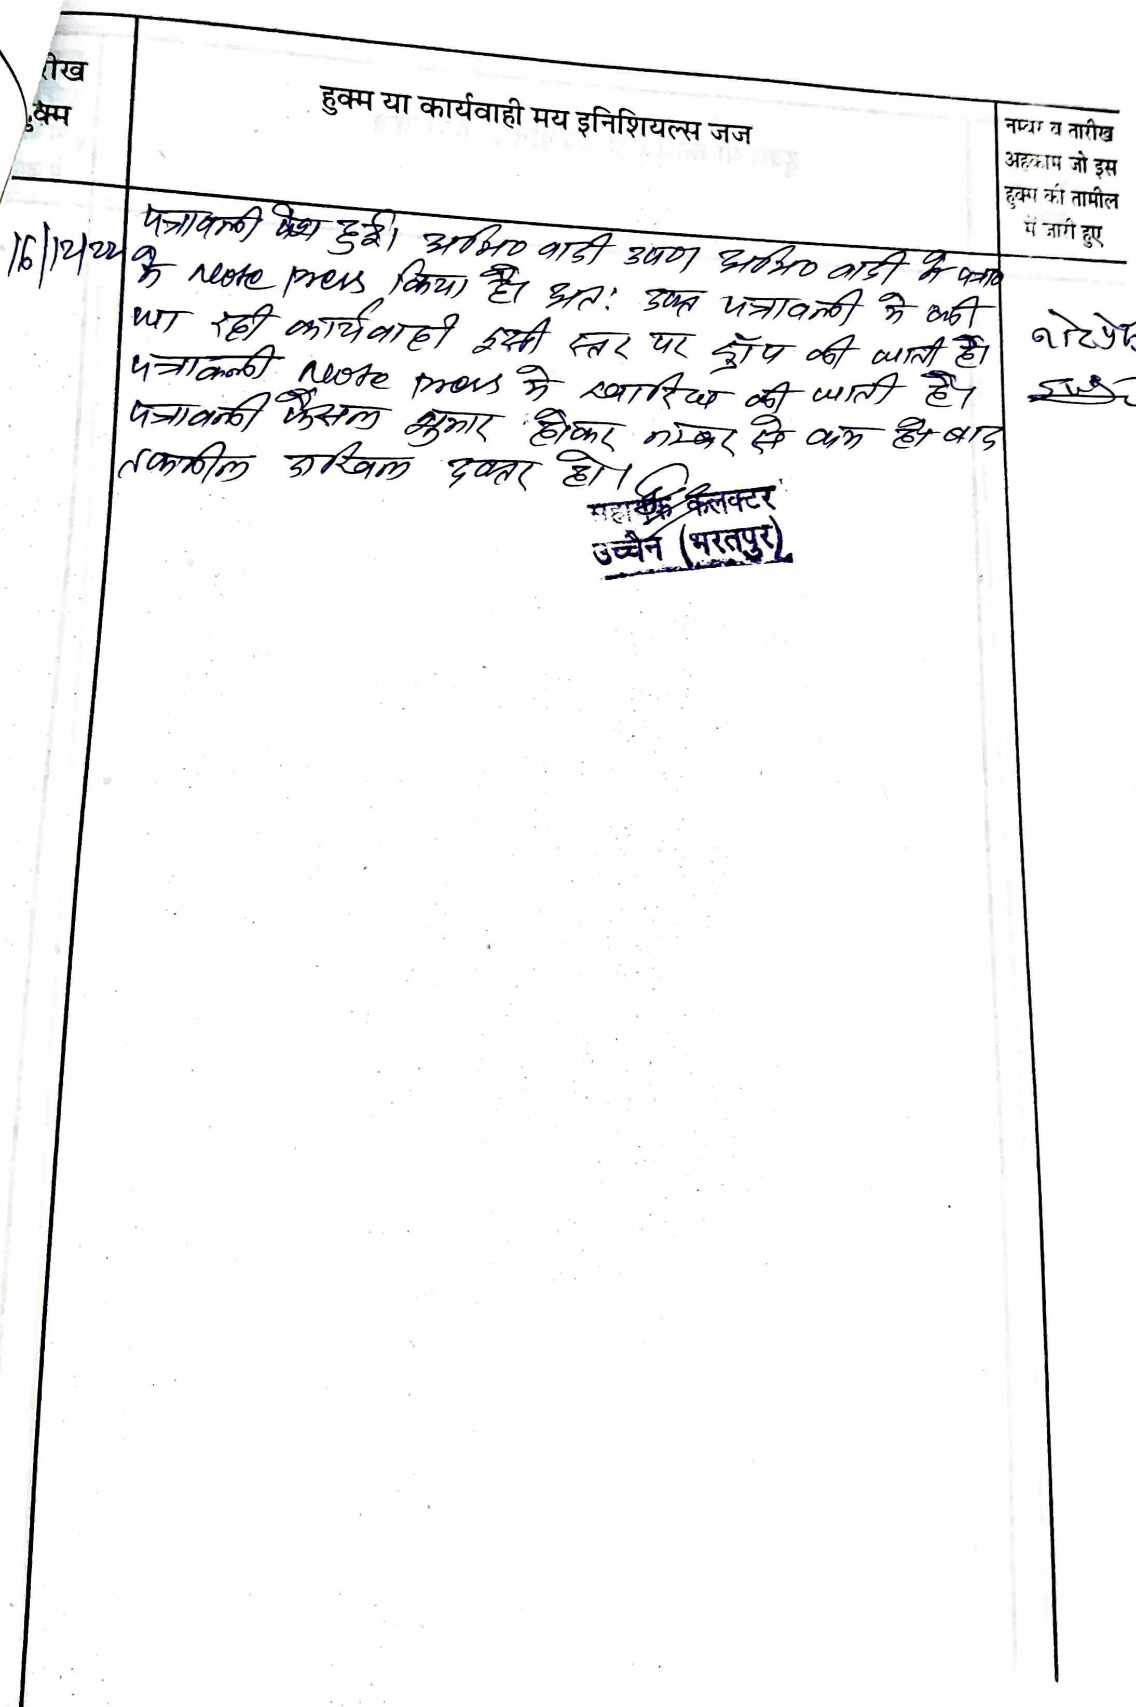 रीख
हुक्म
हुक्म या कार्यवाही मय इनिशियल्स जज
नम्बर व तारीख
अहकाम जो इस
हुक्म की तामील
में जारी हुए
16/12/22
पत्रावली पेश हुई। अभि० वादी उप० अभि० वादी ने पत्रा०
में Note press किया है। अतः उक्त पत्रावली में की
जा रही कार्यवाही इसी स्तर पर ड्रॉप की जाती है।
पत्रावली Note press में खारिज की जाती है।
पत्रावली फैसल शुमार होकर नम्बर से कम हो बाद
तकमील दाखिल दफ्तर हो।
नोटप्रे
सहायक कलक्टर
उच्चैन (भरतपुर)